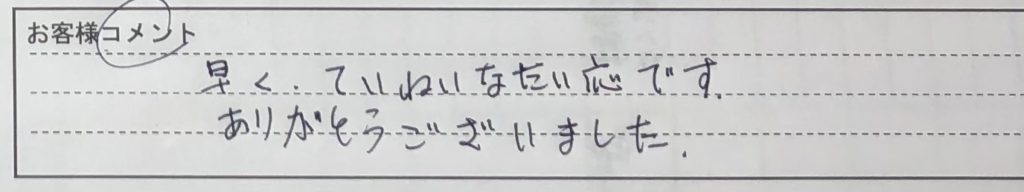 お客様コメント
早く、ていねいなたい応です。
ありがとうございました。